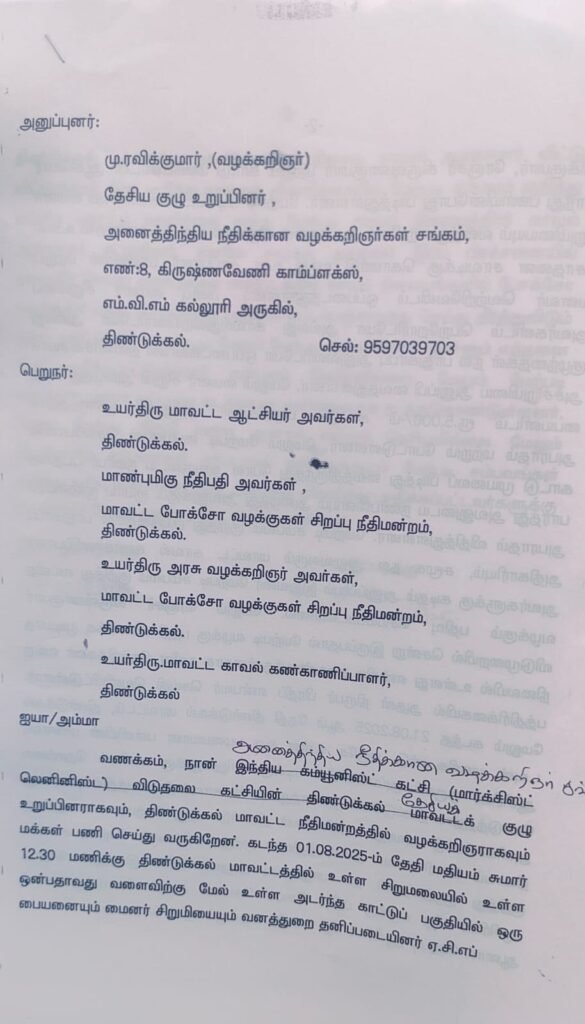 அனுப்புனர்:
மு.ரவிக்குமார் ,(வழக்கறிஞர்)
தேசிய குழு உறுப்பினர் ,
அனைத்திந்திய நீதிக்கான வழக்கறிஞர்கள் சங்கம்,
எண்:8, கிருஷ்ணவேணி காம்ப்ளக்ஸ்,
எம்.வி.எம் கல்லூரி அருகில்,
திண்டுக்கல். செல்: 9597039703
பெறுநர்:
உயர்திரு மாவட்ட ஆட்சியர் அவர்கள்,
திண்டுக்கல்.
மாண்புமிகு நீதிபதி அவர்கள் ,
மாவட்ட போக்சோ வழக்குகள் சிறப்பு நீதிமன்றம்,
திண்டுக்கல்.
உயர்திரு அரசு வழக்கறிஞர் அவர்கள்,
மாவட்ட போக்சோ வழக்குகள் சிறப்பு நீதிமன்றம்,
திண்டுக்கல்.
உயர்திரு.மாவட்ட காவல் கண்காணிப்பாளர்,
திண்டுக்கல்
ஐயா/அம்மா
அனைத்திந்திய நீதிக்கான வழக்கறிஞர்
வணக்கம், நான் இந்திய கம்யூனிஸ்ட் கட்சி (மார்க்சிஸ்ட்
தேசிய
லெனினிஸ்ட்) விடுதலை கட்சியின் திண்டுக்கல் மாவட்டக் குழு
உறுப்பினராகவும், திண்டுக்கல் மாவட்ட நீதிமன்றத்தில் வழக்கறிஞராகவும்
மக்கள் பணி செய்து வருகிறேன். கடந்த 01.08.2025-ம் தேதி மதியம் சுமார்
12.30 மணிக்கு திண்டுக்கல் மாவட்டத்தில் உள்ள சிறுமலையில் உள்ள
ஒன்பதாவது வளைவிற்கு மேல் உள்ள அடர்ந்த காட்டுப் பகுதியில் ஒரு
பையனையும் மைனர் சிறுமியையும் வனத்துறை தனிப்படையினர் ஏ.சி.எப்